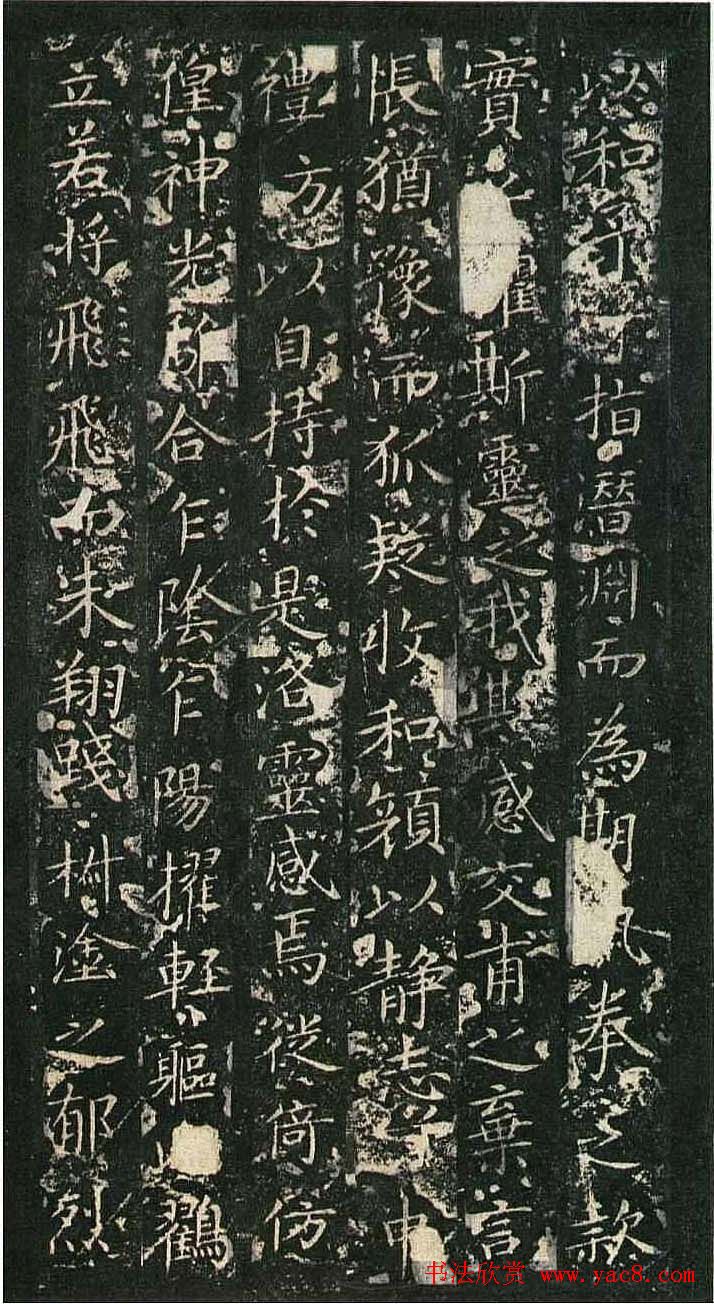 以和予兮指潛淵而為期執拳之款
實兮懼斯靈之我欺感交甫之棄言
悵猶豫而狐疑收和顏以靜志兮申
禮方以自持於是洛靈感焉徙倚仿
徨神光離合乍陰乍陽擢輕軀以鸖
立若將飛飛而未翔踐椒塗之郁烈
书法欣赏 www.yac8.com